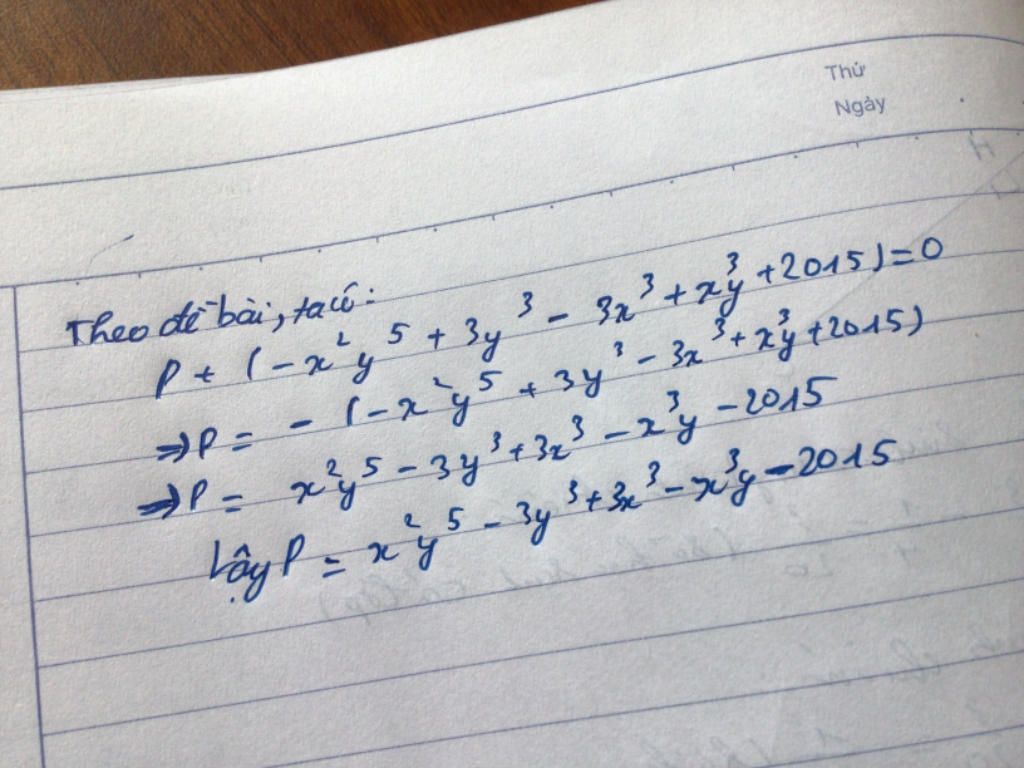 Thứ
Ngày
Theo đề bài, ta có:
P + (-x²y⁵ + 3y³ - 3x³ + x³y + 2015) = 0
⇒ P = - (-x²y⁵ + 3y³ - 3x³ + x³y + 2015)
⇒ P = x²y⁵ - 3y³ + 3x³ - x³y - 2015
Vậy P = x²y⁵ - 3y³ + 3x³ - x³y - 2015